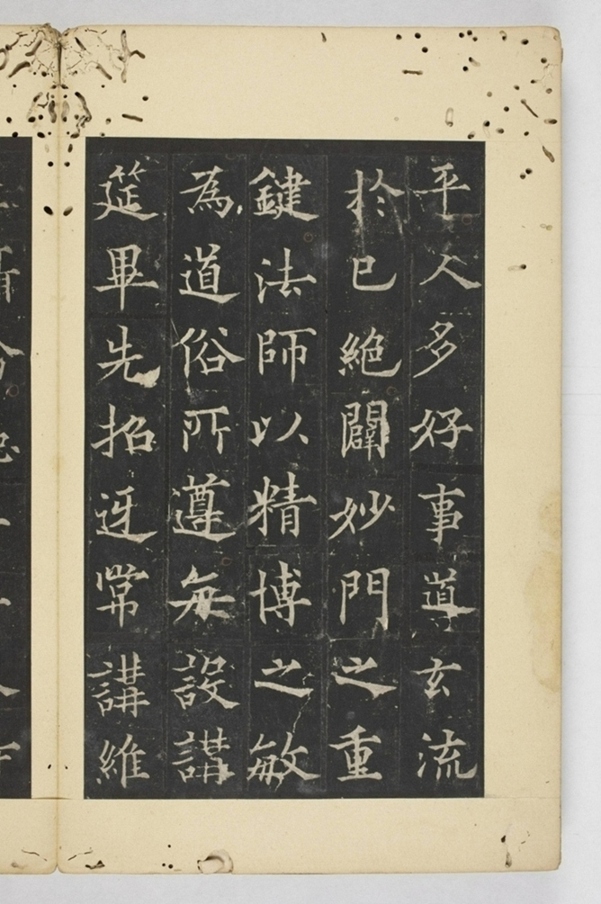 平人多好事道玄流
於已絕闢妙門之重
鍵法師以精博之敏
為道俗所遵每設講
筵畢先招迓常講維